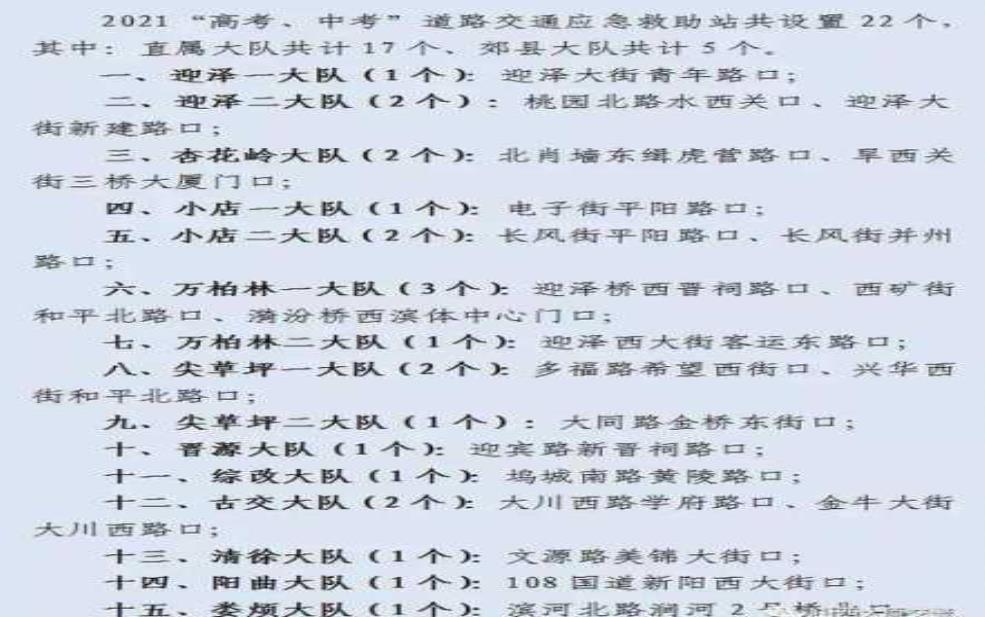 2021 “高考、中考” 道路交通应急救助站共设置 22 个，
其中：直属大队共计 17 个、郊县大队共计 5 个。
一、迎泽一大队（1 个）：迎泽大街青年路口；
二、迎泽二大队（2 个）：桃园北路水西关口、迎泽大
街新建路口；
三、杏花岭大队（2 个）：北肖墙东缉虎营路口、旱西关
街三桥大厦门口；
四、小店一大队（1 个）：电子街平阳路口；
五、小店二大队（2 个）：长风街平阳路口、长风街并州
路口；
六、万柏林一大队（3 个）：迎泽桥西晋祠路口、西矿街
和平北路口、漪汾桥西滨体中心门口；
七、万柏林二大队（1 个）：迎泽西大街客运东路口；
八、尖草坪一大队（2 个）：多福路希望西街口、兴华西
街和平北路口；
九、尖草坪二大队（1 个）：大同路金桥东街口；
十、晋源大队（1 个）：迎宾路新晋祠路口；
十一、综改大队（1 个）：坞城南路黄陵路口；
十二、古交大队（2 个）：大川西路学府路口、金牛大街
大川西路口；
十三、清徐大队（1 个）：文源路美锦大街口；
十四、阳曲大队（1 个）：108 国道新阳西大街口；
十五、娄烦大队（1 个）：滨河北路涧河 2 号桥北口